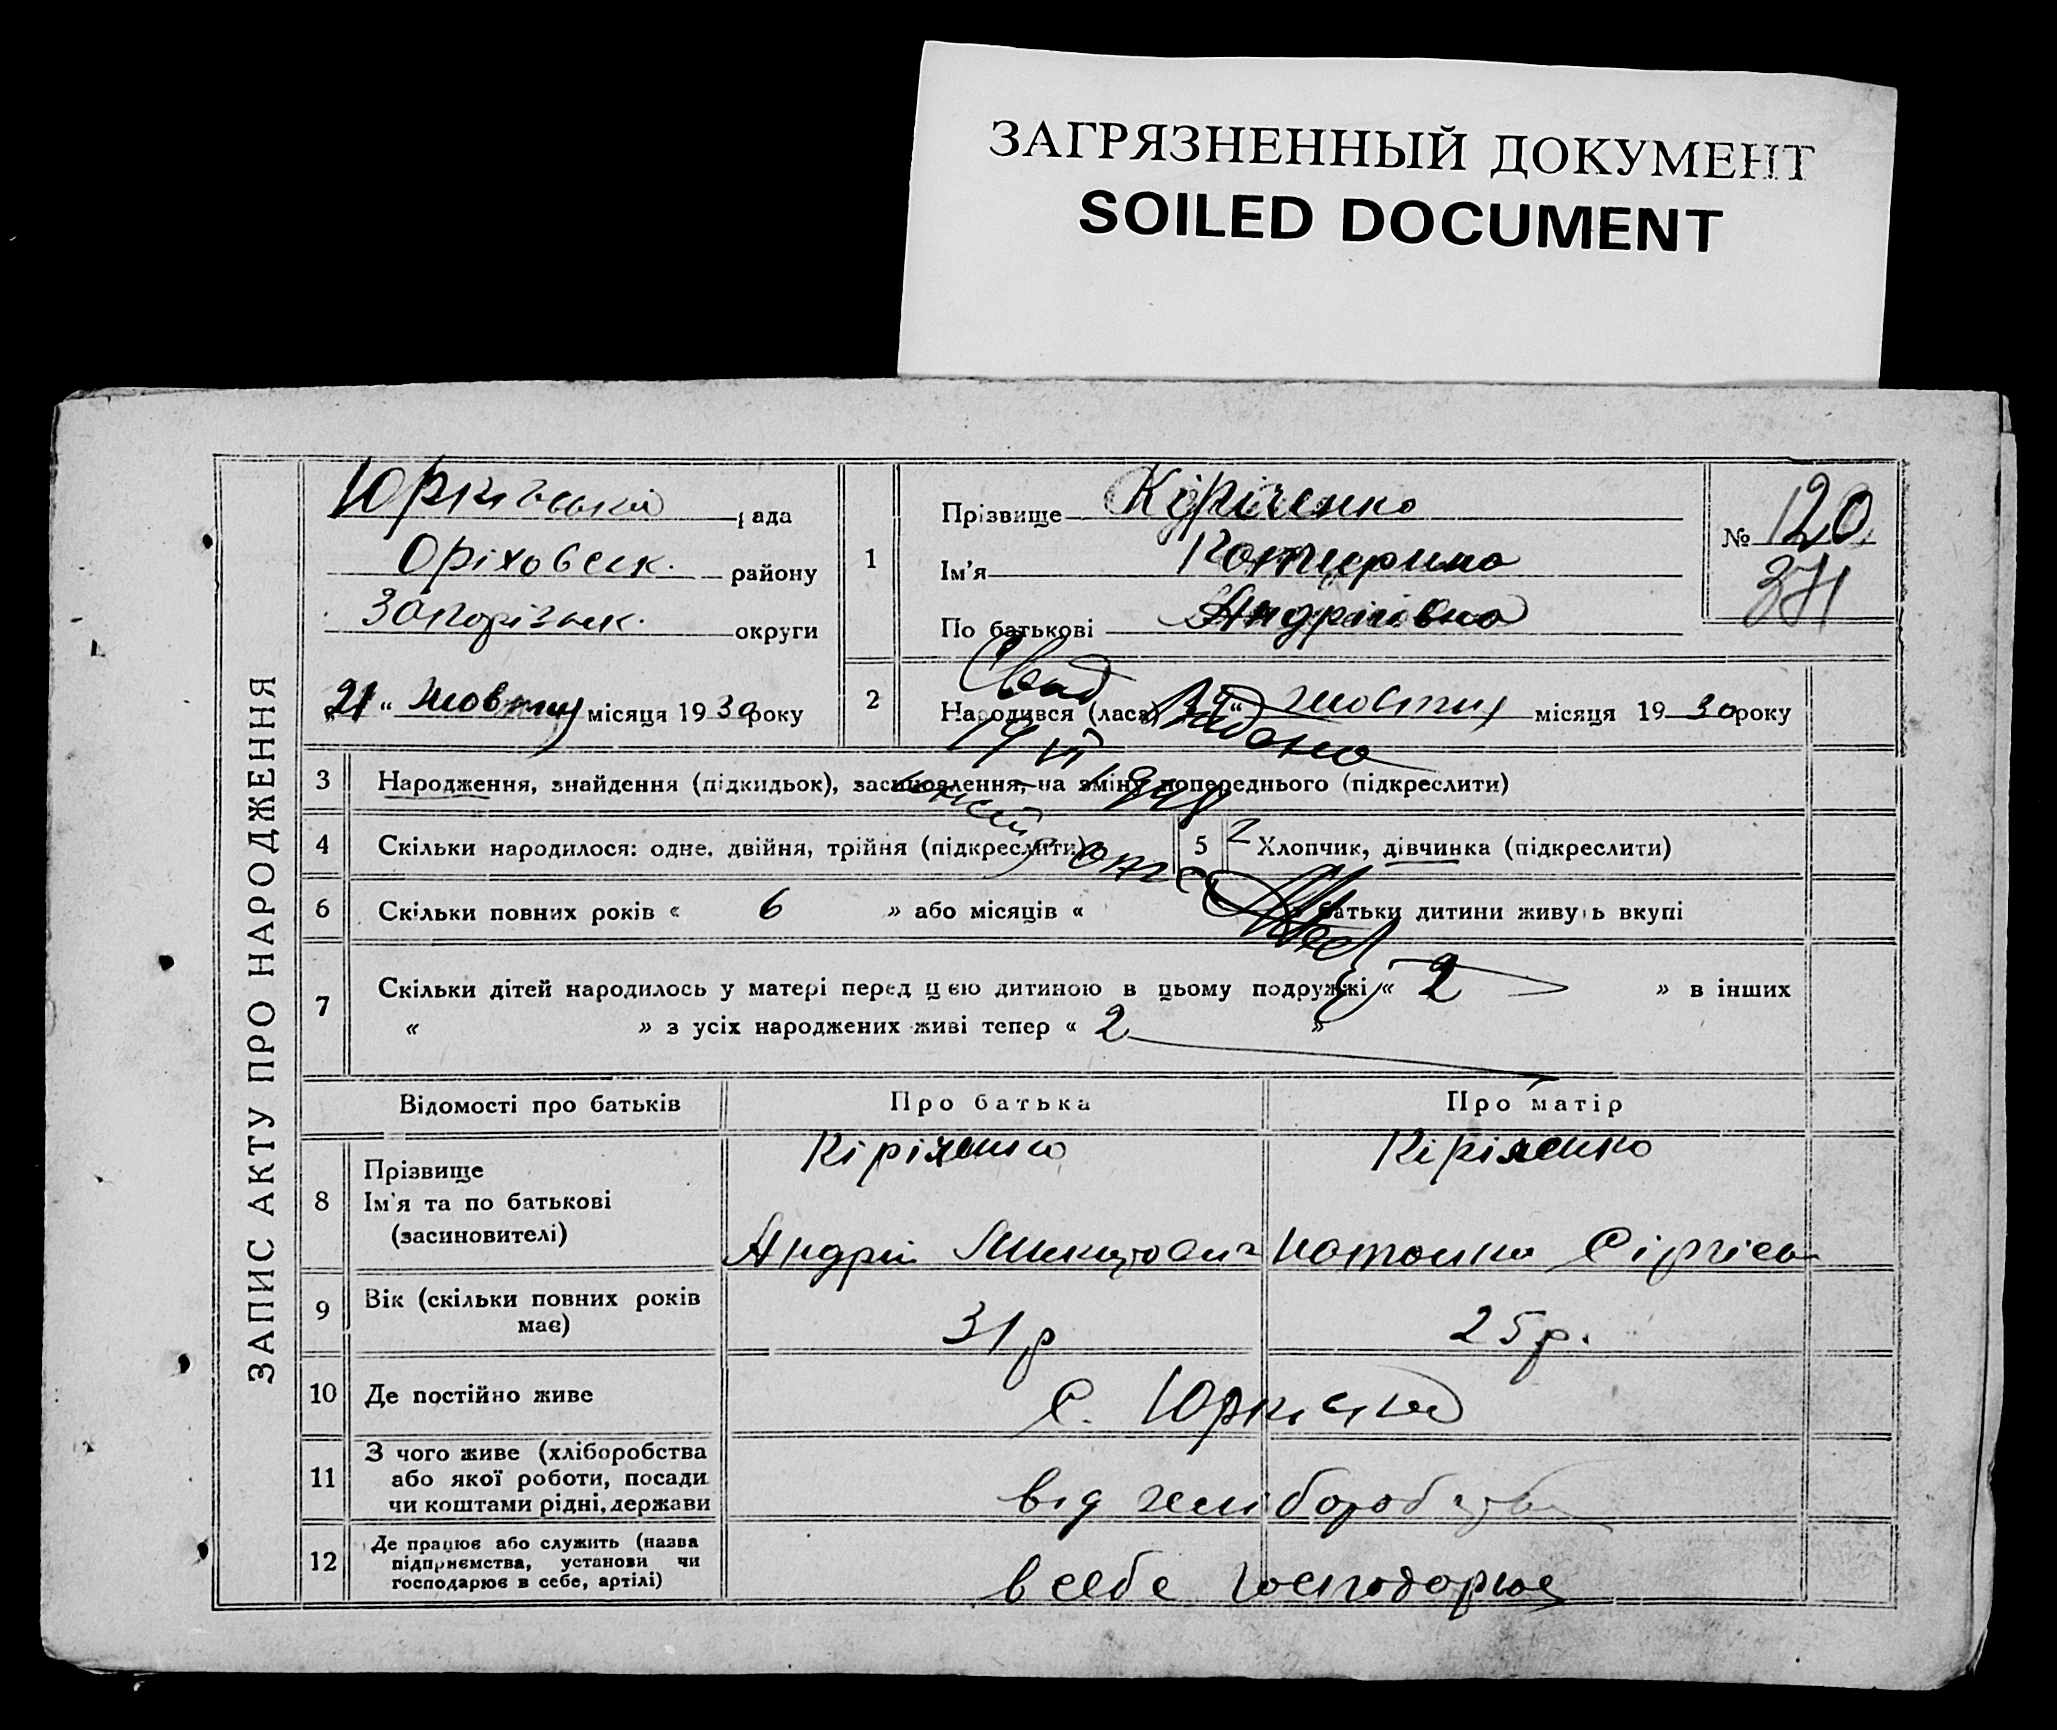 ЗАГРЯЗНЕННЫЙ ДОКУМЕНТ
SOILED DOCUMENT
ЗАПИС АКТУ ПРО НАРОДЖЕННЯ
Юрківська рада
Оріховськ. району
Запорізьк. округи
21 " жовтня місяця 1930 року
1
Прізвище Кіріченко
Ім'я Катирина
По батькові Андріївна
№ 120
371
2
Народився (лась) " жовтня місяця 1930 року
3 Народження, знайдення (підкидьок), засиновлення, на зміну попереднього (підкреслити)
4 Скільки народилося: одне, двійня, трійня (підкреслити) 5 Хлопчик, дівчинка (підкреслити)
6 Скільки повних років « 6 » або місяців « батьки дитини живуть вкупі
7 Скільки дітей народилось у матері перед цією дитиною в цьому подружжі « 2 » в інших
« » з усіх народжених живі тепер « 2 »
Відомості про батьків Про батька Про матір
8 Прізвище Кіріченко Кіріченко
Ім'я та по батькові
(засиновителі) Андрій Наталка
9 Вік (скільки повних років має) 31 р 25 р.
10 Де постійно живе С. Юрківка
11 З чого живе (хліборобства
або якої роботи, посади
чи коштами рідні, держави від хліборобства
12 Де працює або служить (назва
підприємства, установи чи
господарює в себе, артілі) в себе господарює